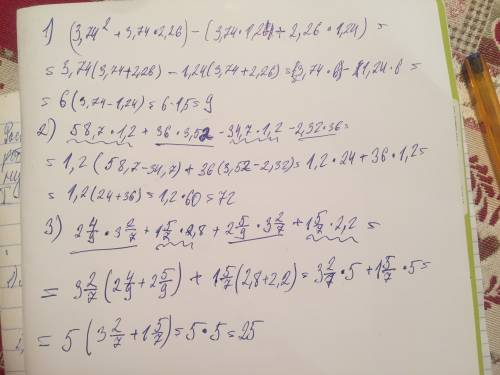 1) (3,74² + 3,74·2,26) - (3,74·1,24 + 2,26·1,24) =
= 3,74(3,74+2,26) - 1,24(3,74+2,26) = (3,74·6) - (1,24·6 =
= 6(3,74-1,24) = 6·1,5 = 9
2) 58,7·1,2 + 36·3,52 - 34,7·1,2 - 2,32·36 =
= 1,2(58,7-34,7) + 36(3,52-2,32) = 1,2·24 + 36·1,2 =
= 1,2(24+36) = 1,2·60 = 72
3) 2 4/9 · 3 2/7 + 1 5/7 · 2,8 + 2 5/9 · 3 2/7 + 1 5/7 · 2,2 =
= 3 2/7 (2 4/9 + 2 5/9) + 1 5/7 (2,8+2,2) = 3 2/7 · 5 + 1 5/7 · 5 =
= 5 (3 2/7 + 1 5/7) = 5·5 = 25